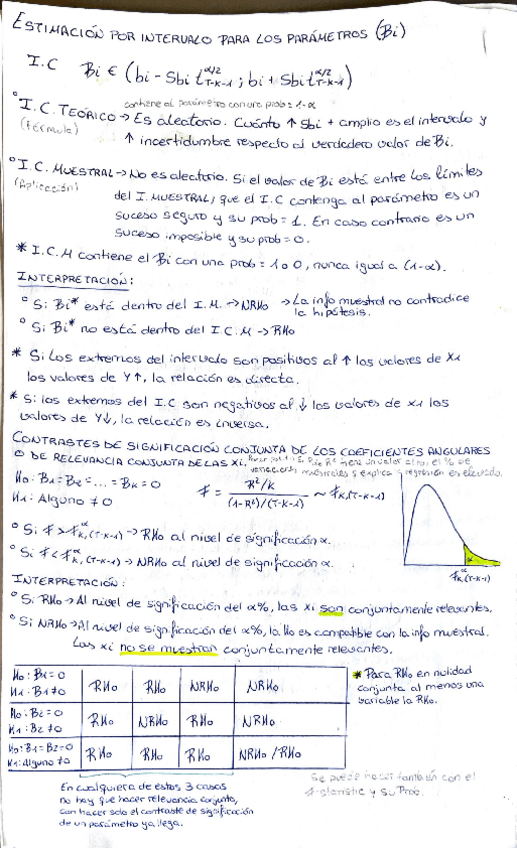 ESTIMACIÓN POR INTERVALO PARA LOS PARÁMETROS (Bi)
I.C Bi ∈ (bi - Sbi t^α/2 T-K-1 ; bi + Sbi t^α/2 T-K-1)
contiene al parámetro con una prob = 1-α
° I.C. TEÓRICO → Es aleatorio. Cuánto ↑ Sbi + amplio es el intervalo y
(Fórmula) ↑ incertidumbre respecto al verdadero valor de Bi.
° I.C. MUESTRAL → No es aleatorio. Si el valor de Bi está entre los límites
(Aplicación) del I. MUESTRAL, que el I.C contenga al parámetro es un
suceso seguro y su prob = 1. En caso contrario es un
suceso imposible y su prob = 0.
* I.C.M contiene el Bi con una prob = 1 o 0, nunca igual a (1-α).
INTERPRETACIÓN:
° Si Bi* está dentro del I.M. → NRHo → La info muestral no contradice
la hipótesis.
° Si Bi* no está dentro del I.C.M → RHo
* Si los extremos del intervalo son positivos al ↑ los valores de X1
los valores de Y ↑, la relación es directa.
* Si los extremos del I.C son negativos al ↓ los valores de x1 los
valores de Y↓, la relación es inversa.
CONTRASTES DE SIGNIFICACIÓN CONJUNTA DE LOS COEFICIENTES ANGULARES
O DE RELEVANCIA CONJUNTA DE LAS Xi.
Ho: B1 = B2 = ... = BK = 0
H1: Alguno ≠ 0
F = R²/K / (1-R²)/(T-K-1) ~ F K,(T-K-1)
° Si F > F^α K,(T-K-1) → RHo al nivel de significación α.
° Si F < F^α K,(T-K-1) → NRHo al nivel de significación α.
α
F^α K,(T-K-1)
INTERPRETACIÓN:
° Si RHo → Al nivel de significación del α%, las xi son conjuntamente relevantes.
° Si NRHo → Al nivel de significación del α%, la Ho es compatible con la info muestral.
Las xi no se muestran conjuntamente relevantes.
Ho: B1 = 0
H1: B1 ≠ 0
RHo RHo NRHo NRHo
Ho: B2 = 0
H1: B2 ≠ 0
RHo NRHo RHo NRHo
Ho: B1 = B2 = 0
H1: Alguno ≠ 0
RHo RHo RHo NRHo / RHo
* Para RHo en nulidad
conjunta al menos una
variable la RHo.
En cualquiera de estos 3 casos
no hay que hacer relevancia conjunta,
con hacer solo el contraste de significación
de un parámetro ya llega.
Se puede hacer también con el
F-statistic y su Prob.